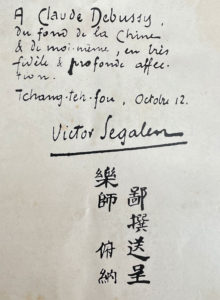 A Claude Debussy,
du fond de la Chine
& de moi-même, en très
fidèle & profonde affec-
tion.
Tchang-teh-fou, Octobre 12.
Victor Segalen
鄙撰送呈
樂師 俯納